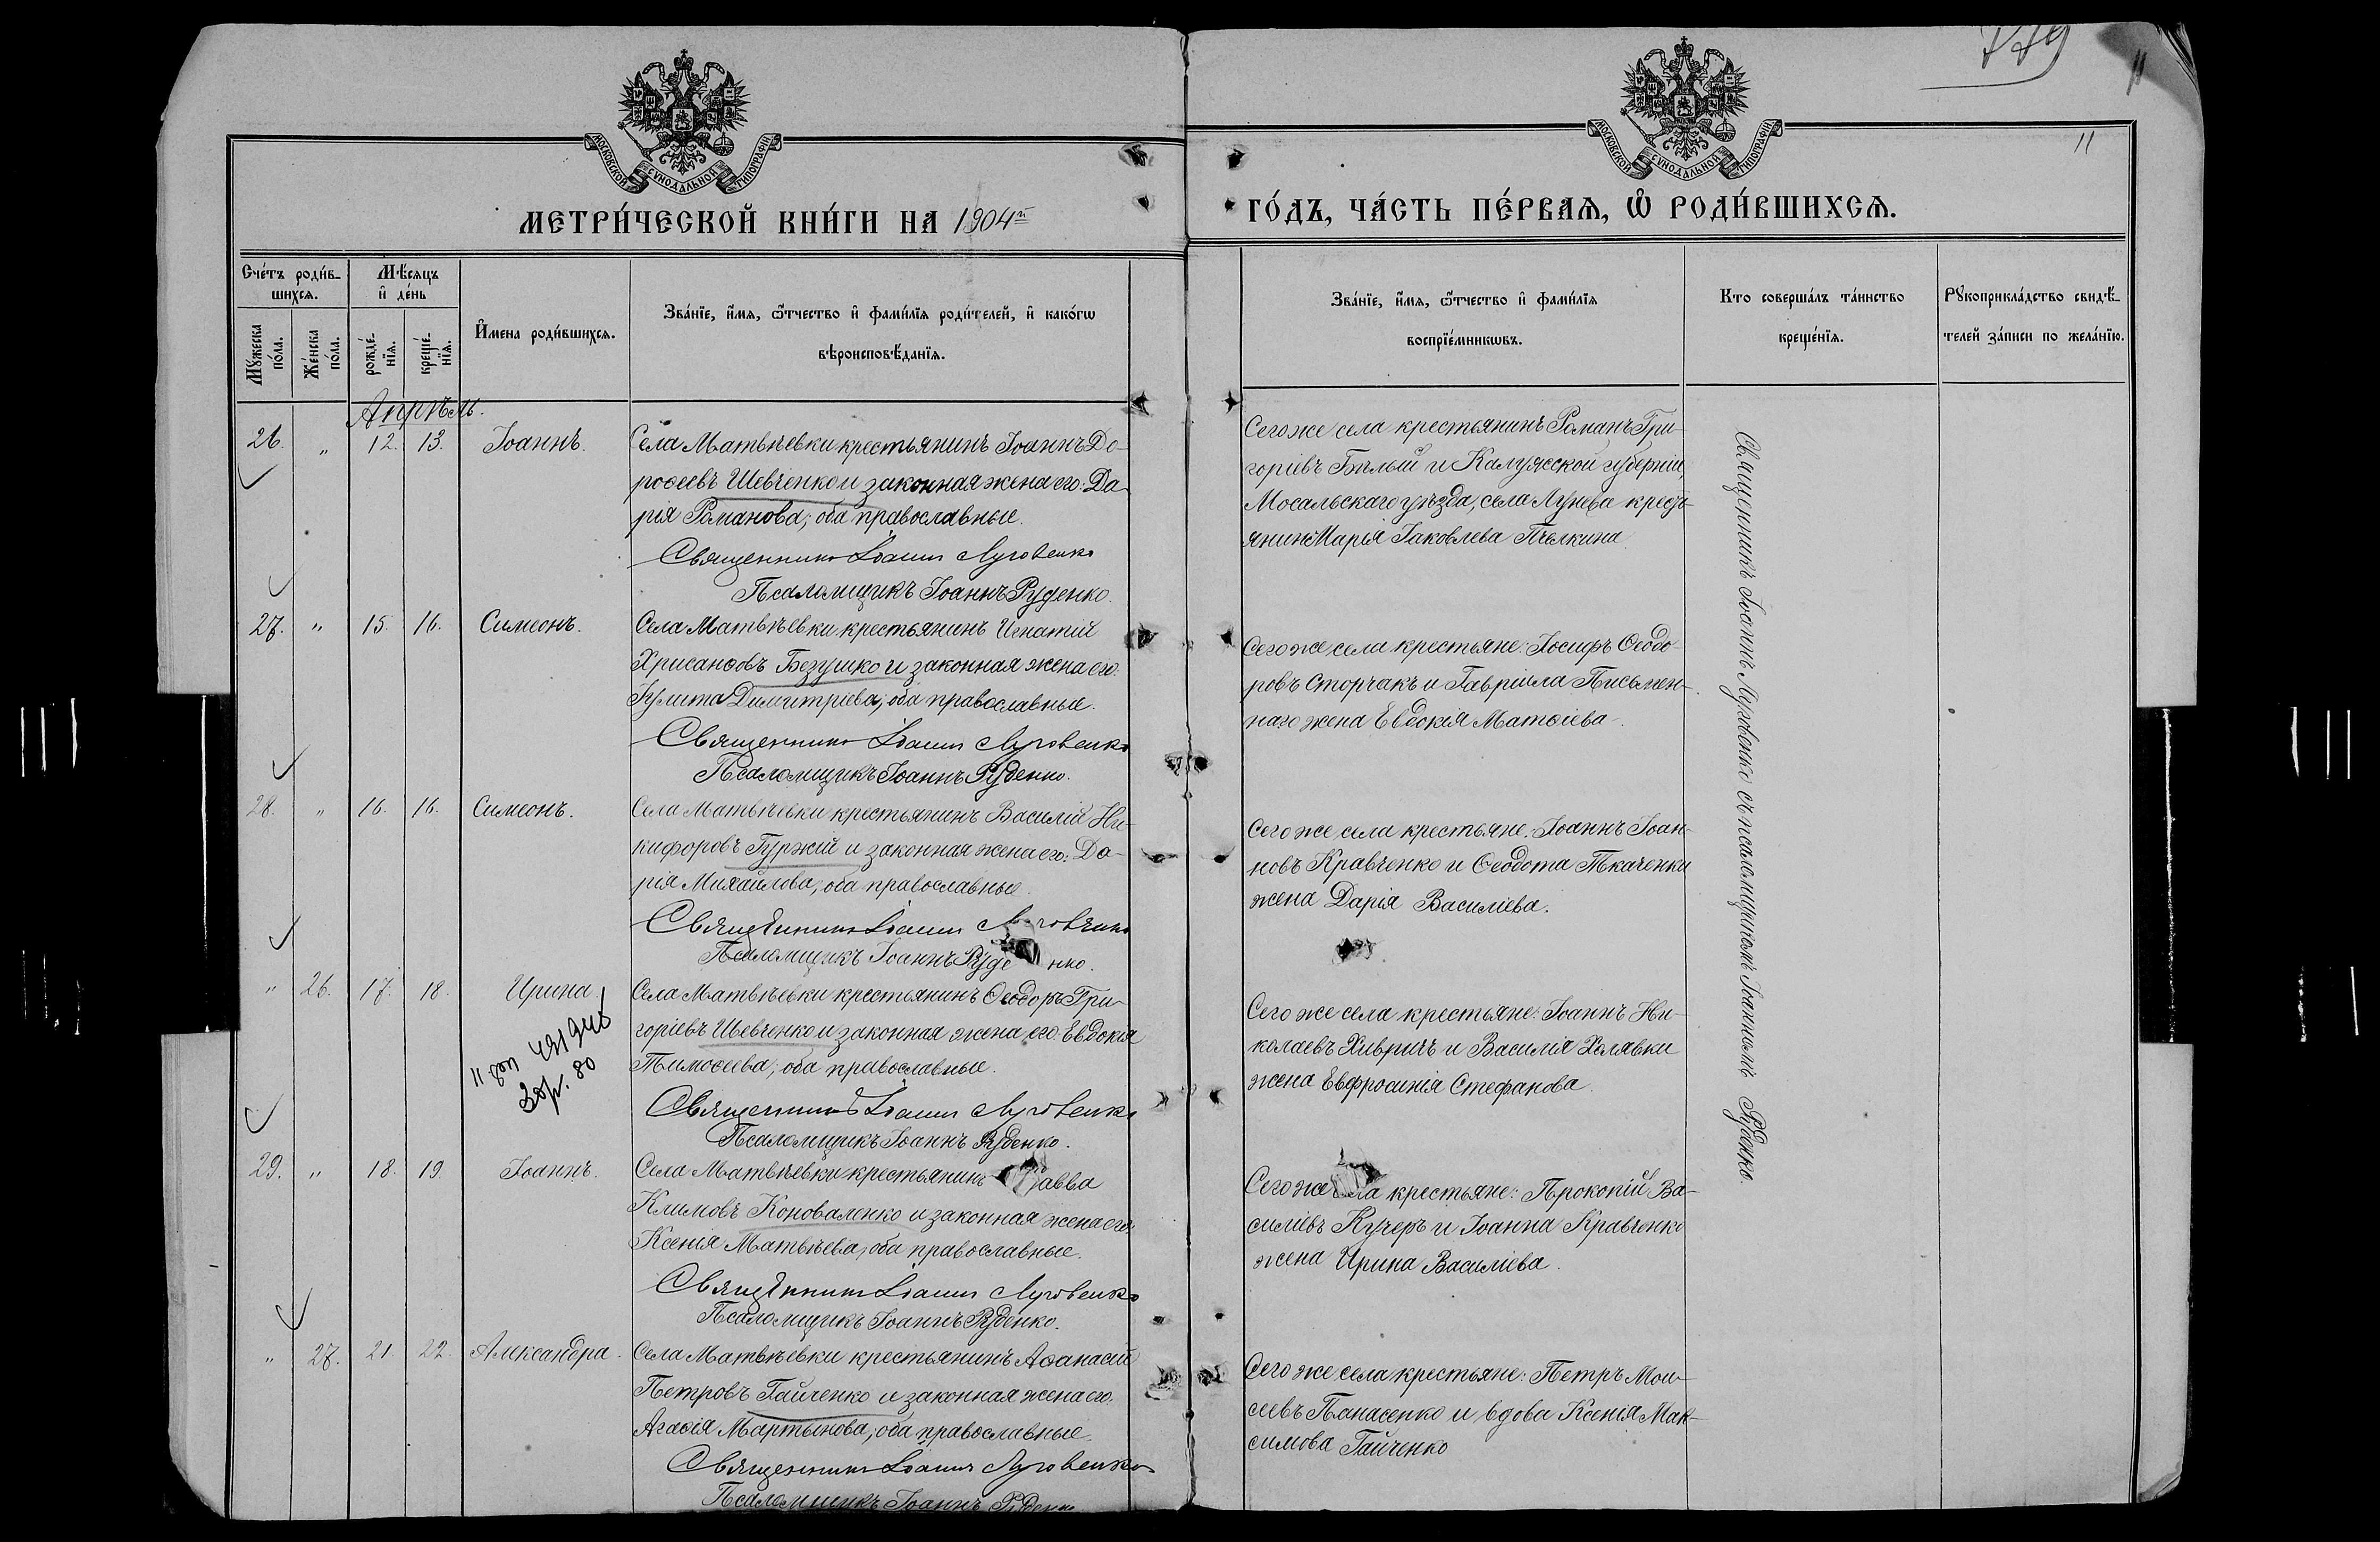 779
11
11
МОСКОВСКОЙ СѴНОДАЛЬНОЙ ТИПОГРАФІИ
МОСКОВСКОЙ СѴНОДАЛЬНОЙ ТИПОГРАФІИ
МЕТРИ́ЧЕСКОЙ КНИ́ГИ НА 1904й
ГО́ДЪ, ЧА́СТЬ ПЕ́РВАѦ, Ѽ РОДИ́ВШИХСѦ.
Сче́тъ роди́в-
шихсѧ.
Мꙋ́жеска по́ла.
Же́нска по́ла.
Мѣ́сѧцъ
и҆ де́нь
рожде́-
нїѧ.
креще́-
нїѧ.
И҆мена роди́вшихсѧ.
Зва́нїе, и҆́мѧ, ѻ҆́тчество и҆ фами́лїѧ роди́телей, и҆ како́гѡ
вѣроисповѣ́данїѧ.
Зва́нїе, и҆́мѧ, ѻ҆́тчество и҆ фами́лїѧ
воспрїе́мникѡвъ.
Кто соверша́лъ та́инство
креще́нїѧ.
Рꙋкоприкла́дство свидѣ́-
телей за́писи по жела́нїю.
Апрѣль.
26. " 12. 13. Іоаннъ.
Села Матвѣевки крестьянинъ Іоаннъ До-
роѳеевъ Шевченко и законная жена его: Да-
рія Романова; оба православные.
Священникъ Іоаннъ Луговенко
Псаломщикъ Іоаннъ Руденко.
Сего же села крестьянинъ Романъ Гри-
горіевъ Бѣлый и Калужской губерніи,
Мосальскаго уѣзда, села Лунева крест-
янин Марія Іаковлева Пѣлкина
27. " 15. 16. Симеонъ.
Села Матвѣевки крестьянинъ Игнатій
Хрисанѳовъ Безушко и законная жена его:
Іулита Димитріева; оба православные.
Священникъ Іоаннъ Луговенко
Псаломщикъ Іоаннъ Руденко.
Сего же села крестьяне: Іосифъ Ѳеодо-
ровъ Сторчакъ и Гавріила Письмен-
наго жена Евдокія Матѳіева.
28. " 16. 16. Симеонъ.
Села Матвѣевки крестьянинъ Василій Ни-
кифоровъ Гуржій и законная жена его: Да-
рія Михайлова; оба православные.
Священникъ Іоаннъ Луговенко
Псаломщикъ Іоаннъ Руденко.
Сего же села крестьяне: Іоаннъ Іоан-
новъ Кравченко и Ѳеодота Ткаченки
жена Дарія Василіева.
" 26. 17. 18. Ирина.
80
Села Матвѣевки крестьянинъ Ѳеодоръ Гри-
горіевъ Шевченко и законная жена его: Евдокія
Тимоѳеева; оба православные.
Священникъ Іоаннъ Луговенко
Псаломщикъ Іоаннъ Руденко.
Сего же села крестьяне: Іоаннъ Ни-
колаевъ Хивричъ и Василія Холявки
жена Евфросинія Стефанова.
29. " 18. 19. Іоаннъ.
Села Матвѣевки крестьянинъ Савва
Климовъ Коноваленко и законная жена его:
Ксенія Матвѣева; оба православные.
Священникъ Іоаннъ Луговенко
Псаломщикъ Іоаннъ Руденко.
Сего же села крестьяне: Прокопій Ва-
силіевъ Кучеръ и Іоанна Кравченко
жена Ирина Василіева.
" 27. 21. 22. Александра.
Села Матвѣевки крестьянинъ Аѳанасій
Петровъ Гайченко и законная жена его:
Агаѳія Мартынова; оба православные.
Священникъ Іоаннъ Луговенко
Псаломщикъ Іоаннъ Руденко
Сего же села крестьяне: Петръ Мои-
сеевъ Панасенко и вдова Ксенія Мак-
симова Гайченко
Священникъ Іоаннъ Луговенко съ псаломщикомъ Іоанномъ Руденко.